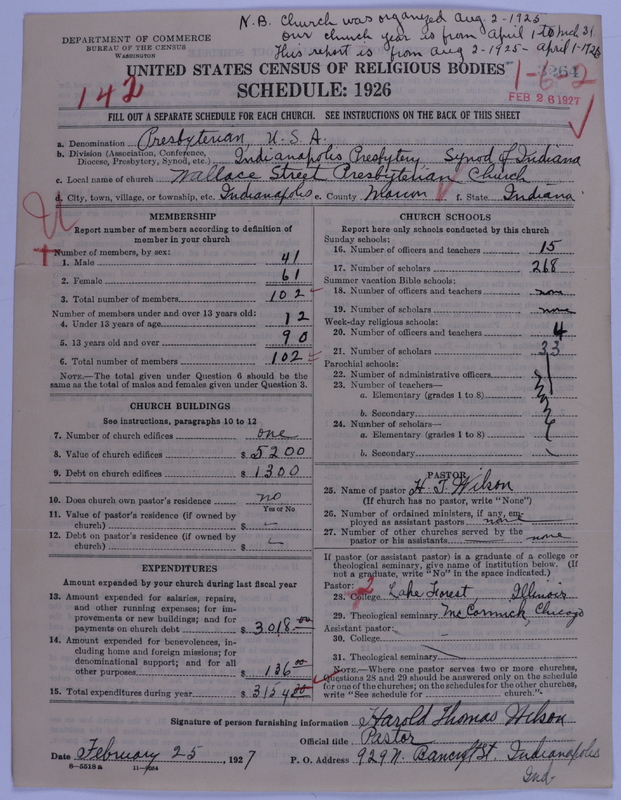 N.B. Church was organized Aug. 2-1925
Our church year is from April 1 to Mch 31.
This report is from Aug 2-1925 - April 1-1926
DEPARTMENT OF COMMERCE
BUREAU OF THE CENSUS
WASHINGTON
UNITED STATES CENSUS OF RELIGIOUS BODIES
1-6-2
SCHEDULE: 1926
142
FEB 26 1927
FILL OUT A SEPARATE SCHEDULE FOR EACH CHURCH. SEE INSTRUCTIONS ON THE BACK OF THIS SHEET
a. Denomination Presbyterian U.S.A.
b. Division (Association, Conference, Diocese, Presbytery, Synod, etc.) Indianapolis Presbytery Synod of Indiana
c. Local name of church Wallace Street Presbyterian Church
d. City, town, village, or township, etc. Indianapolis e. County Marion f. State Indiana
MEMBERSHIP
Report number of members according to definition of
member in your church
Number of members, by sex:
1. Male 41
2. Female 61
3. Total number of members 102
Number of members under and over 13 years old:
4. Under 13 years of age 12
5. 13 years old and over 90
6. Total number of members 102
NOTE.—The total given under Question 6 should be the
same as the total of males and females given under Question 3.
CHURCH BUILDINGS
See instructions, paragraphs 10 to 12
7. Number of church edifices one
8. Value of church edifices $ 5200
9. Debt on church edifices $ 1300
10. Does church own pastor's residence no
Yes or No
11. Value of pastor's residence (if owned by
church) $ -
12. Debt on pastor's residence (if owned by
church) $ -
EXPENDITURES
Amount expended by your church during last fiscal year
13. Amount expended for salaries, repairs,
and other running expenses; for im-
provements or new buildings; and for
payments on church debt $ 3018.00
14. Amount expended for benevolences, in-
cluding home and foreign missions; for
denominational support; and for all
other purposes $ 136.00
15. Total expenditures during year $ 3154.00
CHURCH SCHOOLS
Report here only schools conducted by this church
Sunday schools:
16. Number of officers and teachers 15
17. Number of scholars 268
Summer vacation Bible schools:
18. Number of officers and teachers none
19. Number of scholars none
Week-day religious schools:
20. Number of officers and teachers 4
21. Number of scholars 33
Parochial schools:
22. Number of administrative officers
23. Number of teachers—
a. Elementary (grades 1 to 8)
b. Secondary
24. Number of scholars—
a. Elementary (grades 1 to 8)
b. Secondary
PASTOR
25. Name of pastor H. T. Wilson
(If church has no pastor, write "None")
26. Number of ordained ministers, if any, em-
ployed as assistant pastors none
27. Number of other churches served by the
pastor or his assistants none
If pastor (or assistant pastor) is a graduate of a college or
theological seminary, give name of institution below. (If
not a graduate, write "No" in the space indicated.)
Pastor:
28. College Lake Forest, Illinois
29. Theological seminary McCormick, Chicago
Assistant pastor:
30. College
31. Theological seminary
NOTE.—Where one pastor serves two or more churches,
Questions 28 and 29 should be answered only on the schedule
for one of the churches; on the schedules for the other churches,
write "See schedule for church."
Signature of person furnishing information Harold Thomas Wilson
Official title Pastor
Date February 25, 1927 P. O. Address 929 N. Bancroft St. Indianapolis
Ind.
8-5518 a